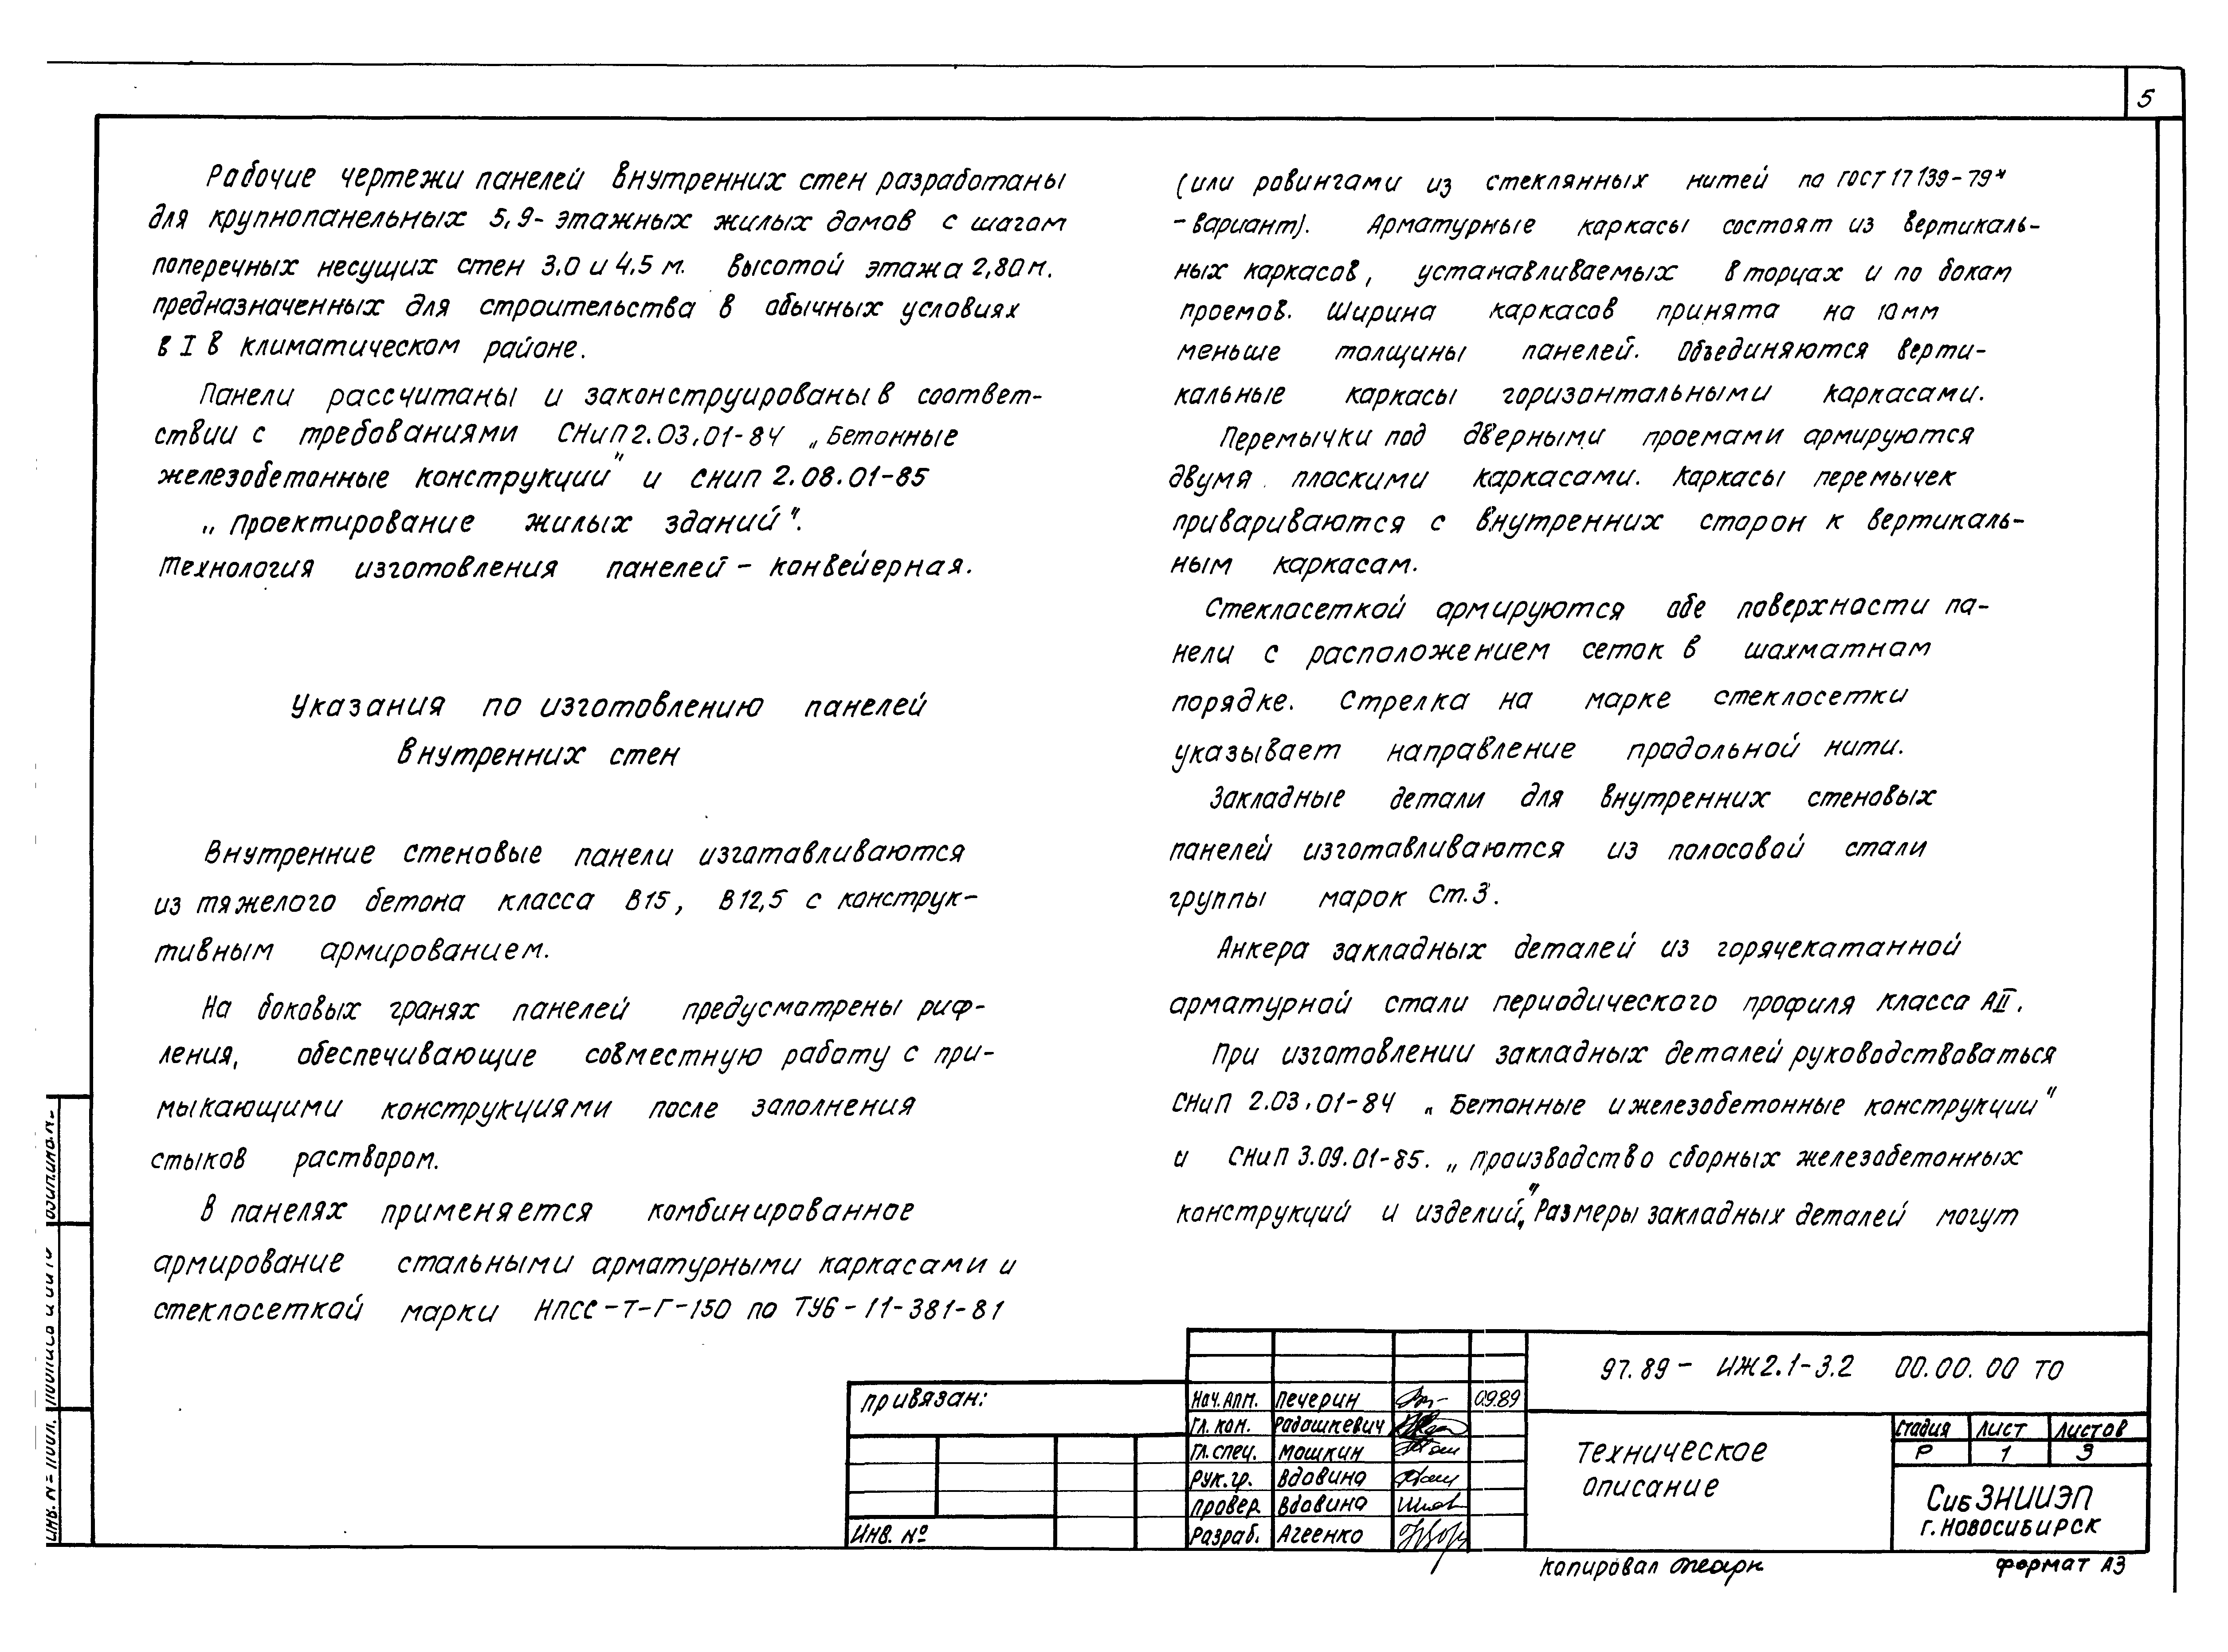 5
Рабочие чертежи панелей внутренних стен разработаны
для крупнопанельных 5,9- этажных жилых домов с шагом
поперечных несущих стен 3,0 и 4,5 м. высотой этажа 2,80 м.
предназначенных для строительства в обычных условиях
в I В климатическом районе.
Панели рассчитаны и законструированы в соответ-
ствии с требованиями СНиП 2.03.01-84 „Бетонные
железобетонные конструкции" и СНиП 2.08.01-85
„Проектирование жилых зданий".
Технология изготовления панелей - конвейерная.
Указания по изготовлению панелей
внутренних стен
Внутренние стеновые панели изготавливаются
из тяжелого бетона класса В15, В12,5 с конструк-
тивным армированием.
На боковых гранях панелей предусмотрены риф-
ления, обеспечивающие совместную работу с при-
мыкающими конструкциями после заполнения
стыков раствором.
В панелях применяется комбинированное
армирование стальными арматурными каркасами и
стеклосеткой марки НПСС-Т-Г-150 по ТУ6-11-381-81
(или ровингами из стеклянных нитей по ГОСТ 17139-79*
-вариант). Арматурные каркасы состоят из вертикаль-
ных каркасов, устанавливаемых в торцах и по бокам
проемов. Ширина каркасов принята на 10 мм
меньше толщины панелей. Объединяются верти-
кальные каркасы горизонтальными каркасами.
Перемычки под дверными проемами армируются
двумя плоскими каркасами. Каркасы перемычек
привариваются с внутренних сторон к вертикаль-
ным каркасам.
Стеклосеткой армируются обе поверхности па-
нели с расположением сеток в шахматном
порядке. Стрелка на марке стеклосетки
указывает направление продольной нити.
Закладные детали для внутренних стеновых
панелей изготавливаются из полосовой стали
группы марок Ст.3.
Анкера закладных деталей из горячекатанной
арматурной стали периодического профиля класса АII.
При изготовлении закладных деталей руководствоваться
СНиП 2.03.01-84 „Бетонные и железобетонные конструкции"
и СНиП 3.09.01-85. „Производство сборных железобетонных
конструкций и изделий". Размеры закладных деталей могут
Привязан:
Инв. №
Нач. АПМ. Печерин 09.89
Гл. кон. Радашкевич
Гл. спец. Мошкин
Рук. гр. Вдовина
Провер. Вдовина
Разраб. Агеенко
97.89 - ИЖ2.1-3.2 00.00.00 ТО
Техническое
описание
Стадия Лист Листов
Р 1 3
СибЗНИИЭП
г. Новосибирск
Копировал
Формат А3
Инв. № подл.